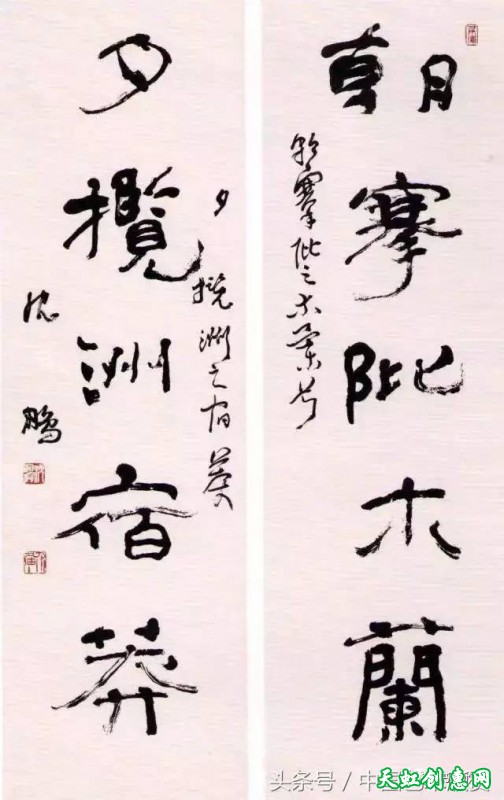 朝搴阰木蘭
朝搴阰之木蘭兮
夕攬洲宿莽
夕攬洲之宿莽
沈鵬
头条号 / 中国
天虹创意网